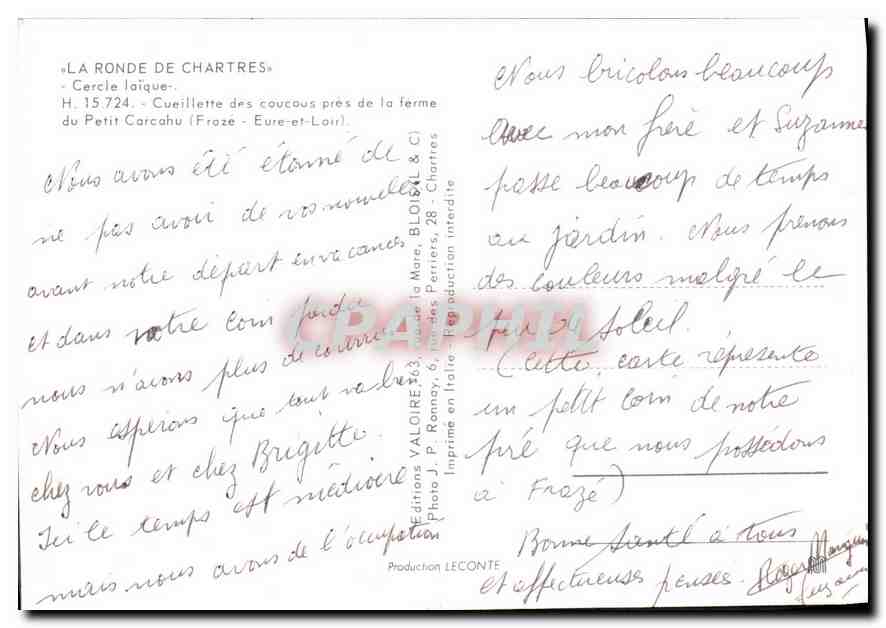 «LA RONDE DE CHARTRES»
- Cercle laïque-.
H. 15.724. - Cueillette des coucous près de la ferme
du Petit Carcahu (Frazé - Eure-et-Loir).
Nous avons été étonné de
ne pas avoir de vos nouvelles
avant notre départ en vacances
et dans notre coin perdu
nous n'avons plus de courrier
Nous espérons que tout va bien
chez vous et chez Brigitte.
Ici le temps est médiocre
mais nous avons de l'occupation
Editions VALOIRE, 63, rue de la Mare, BLOIS (L & C)
Photo J. P. Ronnay, 6, rue des Perriers, 28 - Chartres
Imprimé en Italie - Reproduction interdite
Production LECONTE
CPAPHIL
Nous bricolons beaucoup
avec mon frère et Suzanne
passe beaucoup de temps
au jardin. Nous prenons
des couleurs malgré le
peu de soleil.
(Cette carte réprésente
un petit coin de notre
pré que nous possédons
à Frazé)
Bonne santé à tous
et affectueuses pensées. Roger
Suzanne